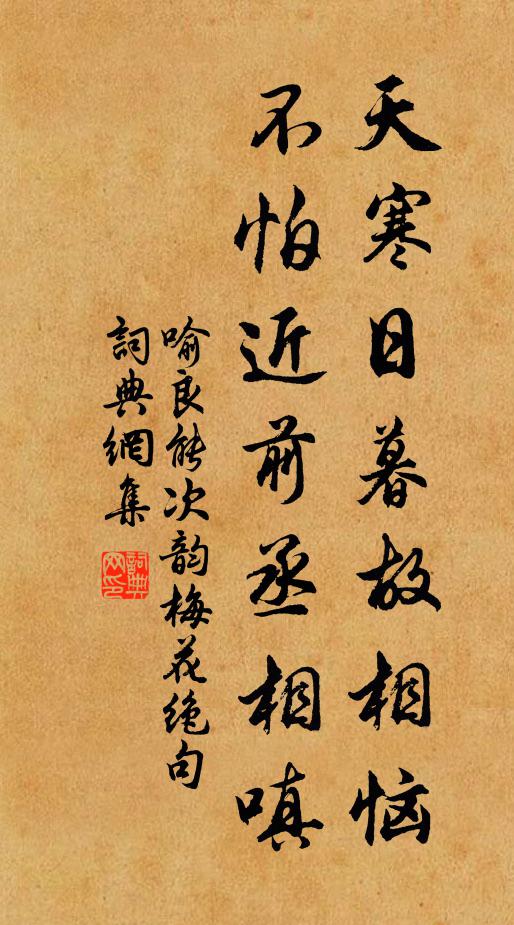 天寒日暮故相恼
不怕近前丞相嗔
喻良能次韵梅花绝句
詞典網集
詞典网印